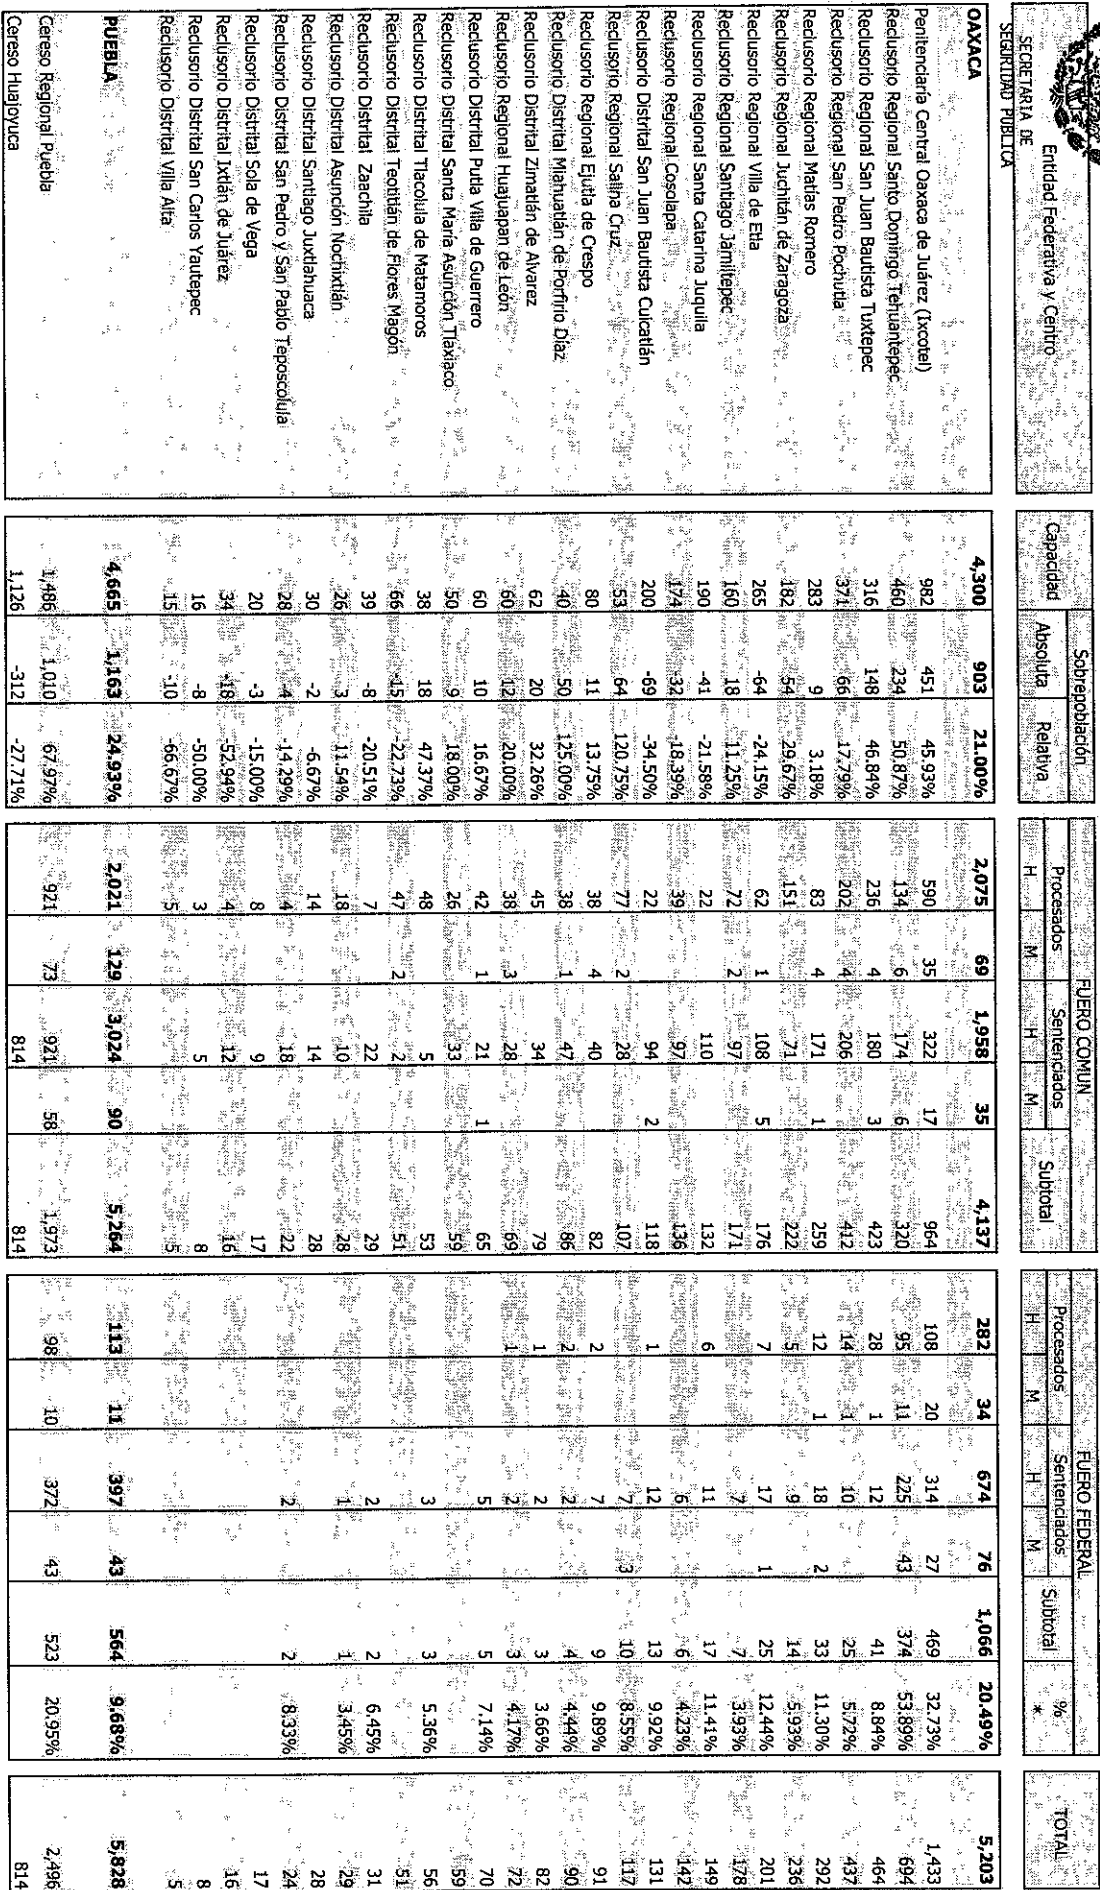 SECRETARIA DE
SEGURIDAD PUBLICA
Entidad Federativa y Centro Capacidad Sobrepoblación FUERO COMUN FUERO FEDERAL TOTAL
Absoluta Relativa Procesados Sentenciados Subtotal Procesados Sentenciados Subtotal % *
H M H M H M H M
OAXACA 4,300 903 21.00% 2,075 69 1,958 35 4,137 282 34 674 76 1,066 20.49% 5,203
Penitenciaría Central Oaxaca de Juárez (Ixcotel) 982 451 45.93% 590 35 322 17 964 108 20 314 27 469 32.73% 1,433
Reclusorio Regional Santo Domingo Tehuantepec 460 234 50.87% 134 6 174 6 320 95 11 225 43 374 53.89% 694
Reclusorio Regional San Juan Bautista Tuxtepec 316 148 46.84% 236 4 180 3 423 28 1 12 41 8.84% 464
Reclusorio Regional San Pedro Pochutla 371 66 17.79% 202 4 206 412 14 1 10 25 5.72% 437
Reclusorio Regional Matías Romero 283 9 3.18% 83 4 171 1 259 12 1 18 2 33 11.30% 292
Reclusorio Regional Juchitán de Zaragoza 182 54 29.67% 151 71 222 5 9 14 5.93% 236
Reclusorio Regional Villa de Etla 265 -64 -24.15% 62 1 108 5 176 7 17 1 25 12.44% 201
Reclusorio Regional Santiago Jamiltepec 160 18 11.25% 72 2 97 171 7 7 3.93% 178
Reclusorio Regional Santa Catarina Juquila 190 -41 -21.58% 22 110 132 6 11 17 11.41% 149
Reclusorio Regional Cosolapa 174 -32 -18.39% 39 97 136 6 6 4.23% 142
Reclusorio Distrital San Juan Bautista Cuicatlán 200 -69 -34.50% 22 94 2 118 1 12 13 9.92% 131
Reclusorio Regional Salina Cruz 53 64 120.75% 77 2 28 107 7 3 10 8.55% 117
Reclusorio Regional Ejutla de Crespo 80 11 13.75% 38 4 40 82 2 7 9 9.89% 91
Reclusorio Distrital Miahuatlán de Porfirio Díaz 40 50 125.00% 38 1 47 86 2 2 4 4.44% 90
Reclusorio Distrital Zimatlán de Alvarez 62 20 32.26% 45 34 79 1 2 3 3.66% 82
Reclusorio Regional Huajuapan de León 60 12 20.00% 38 3 28 69 1 2 3 4.17% 72
Reclusorio Distrital Putla Villa de Guerrero 60 10 16.67% 42 1 21 1 65 5 5 7.14% 70
Reclusorio Distrital Santa María Asunción Tlaxiaco 50 9 18.00% 26 33 59 59
Reclusorio Distrital Tlacolula de Matamoros 38 18 47.37% 48 5 53 3 3 5.36% 56
Reclusorio Distrital Teotitlán de Flores Magón 66 -15 -22.73% 47 2 2 51 51
Reclusorio Distrital Zaachila 39 -8 -20.51% 7 22 29 2 2 6.45% 31
Reclusorio Distrital Asunción Nochixtlán 26 3 11.54% 18 10 28 1 1 3.45% 29
Reclusorio Distrital Santiago Juxtlahuaca 30 -2 -6.67% 14 14 28 28
Reclusorio Distrital San Pedro y San Pablo Teposcolula 28 -4 -14.29% 4 18 22 2 2 8.33% 24
Reclusorio Distrital Sola de Vega 20 -3 -15.00% 8 9 17 17
Reclusorio Distrital Ixtlán de Juárez 34 -18 -52.94% 4 12 16 16
Reclusorio Distrital San Carlos Yautepec 16 -8 -50.00% 3 5 8 8
Reclusorio Distrital Villa Alta 15 -10 -66.67% 5 5 5
PUEBLA 4,665 1,163 24.93% 2,021 129 3,024 90 5,264 113 11 397 43 564 9.68% 5,828
Cereso Regional Puebla 1,486 1,010 67.97% 921 73 921 58 1,973 98 10 372 43 523 20.95% 2,496
Cereso Huajoyuca 1,126 -312 -27.71% 814 814 814